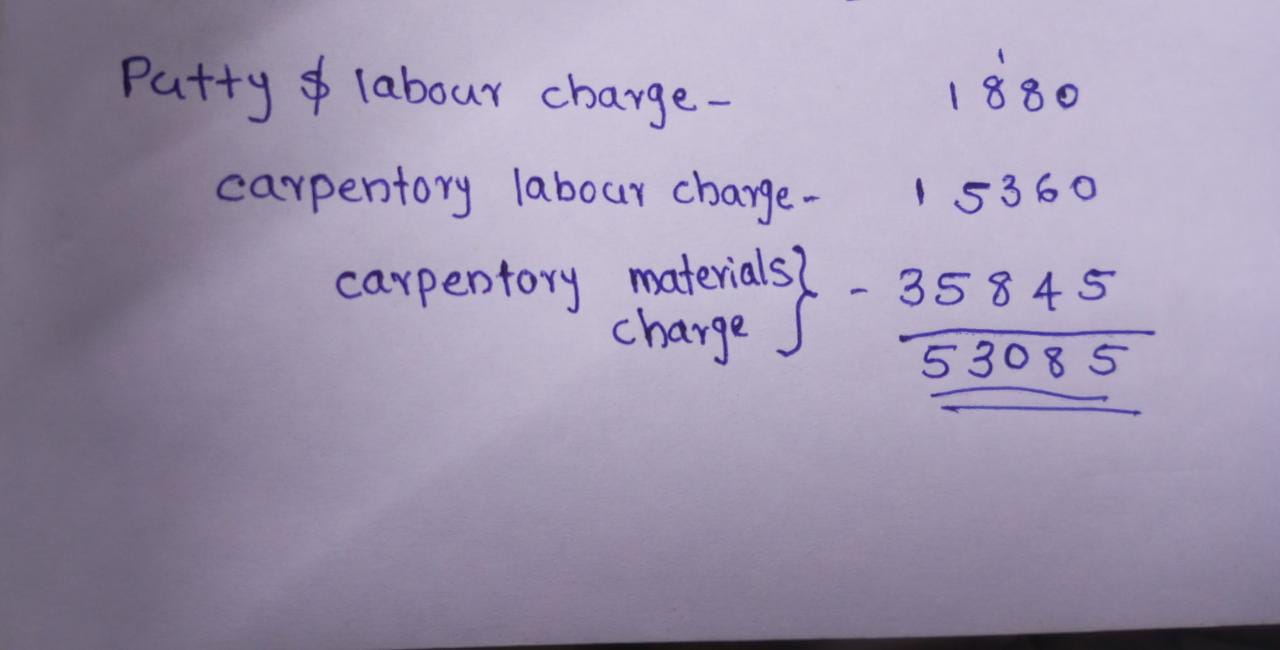 Putty & labour charge - 1880
carpentory labour charge - 15360
carpentory materials } - 35845
charge
53085